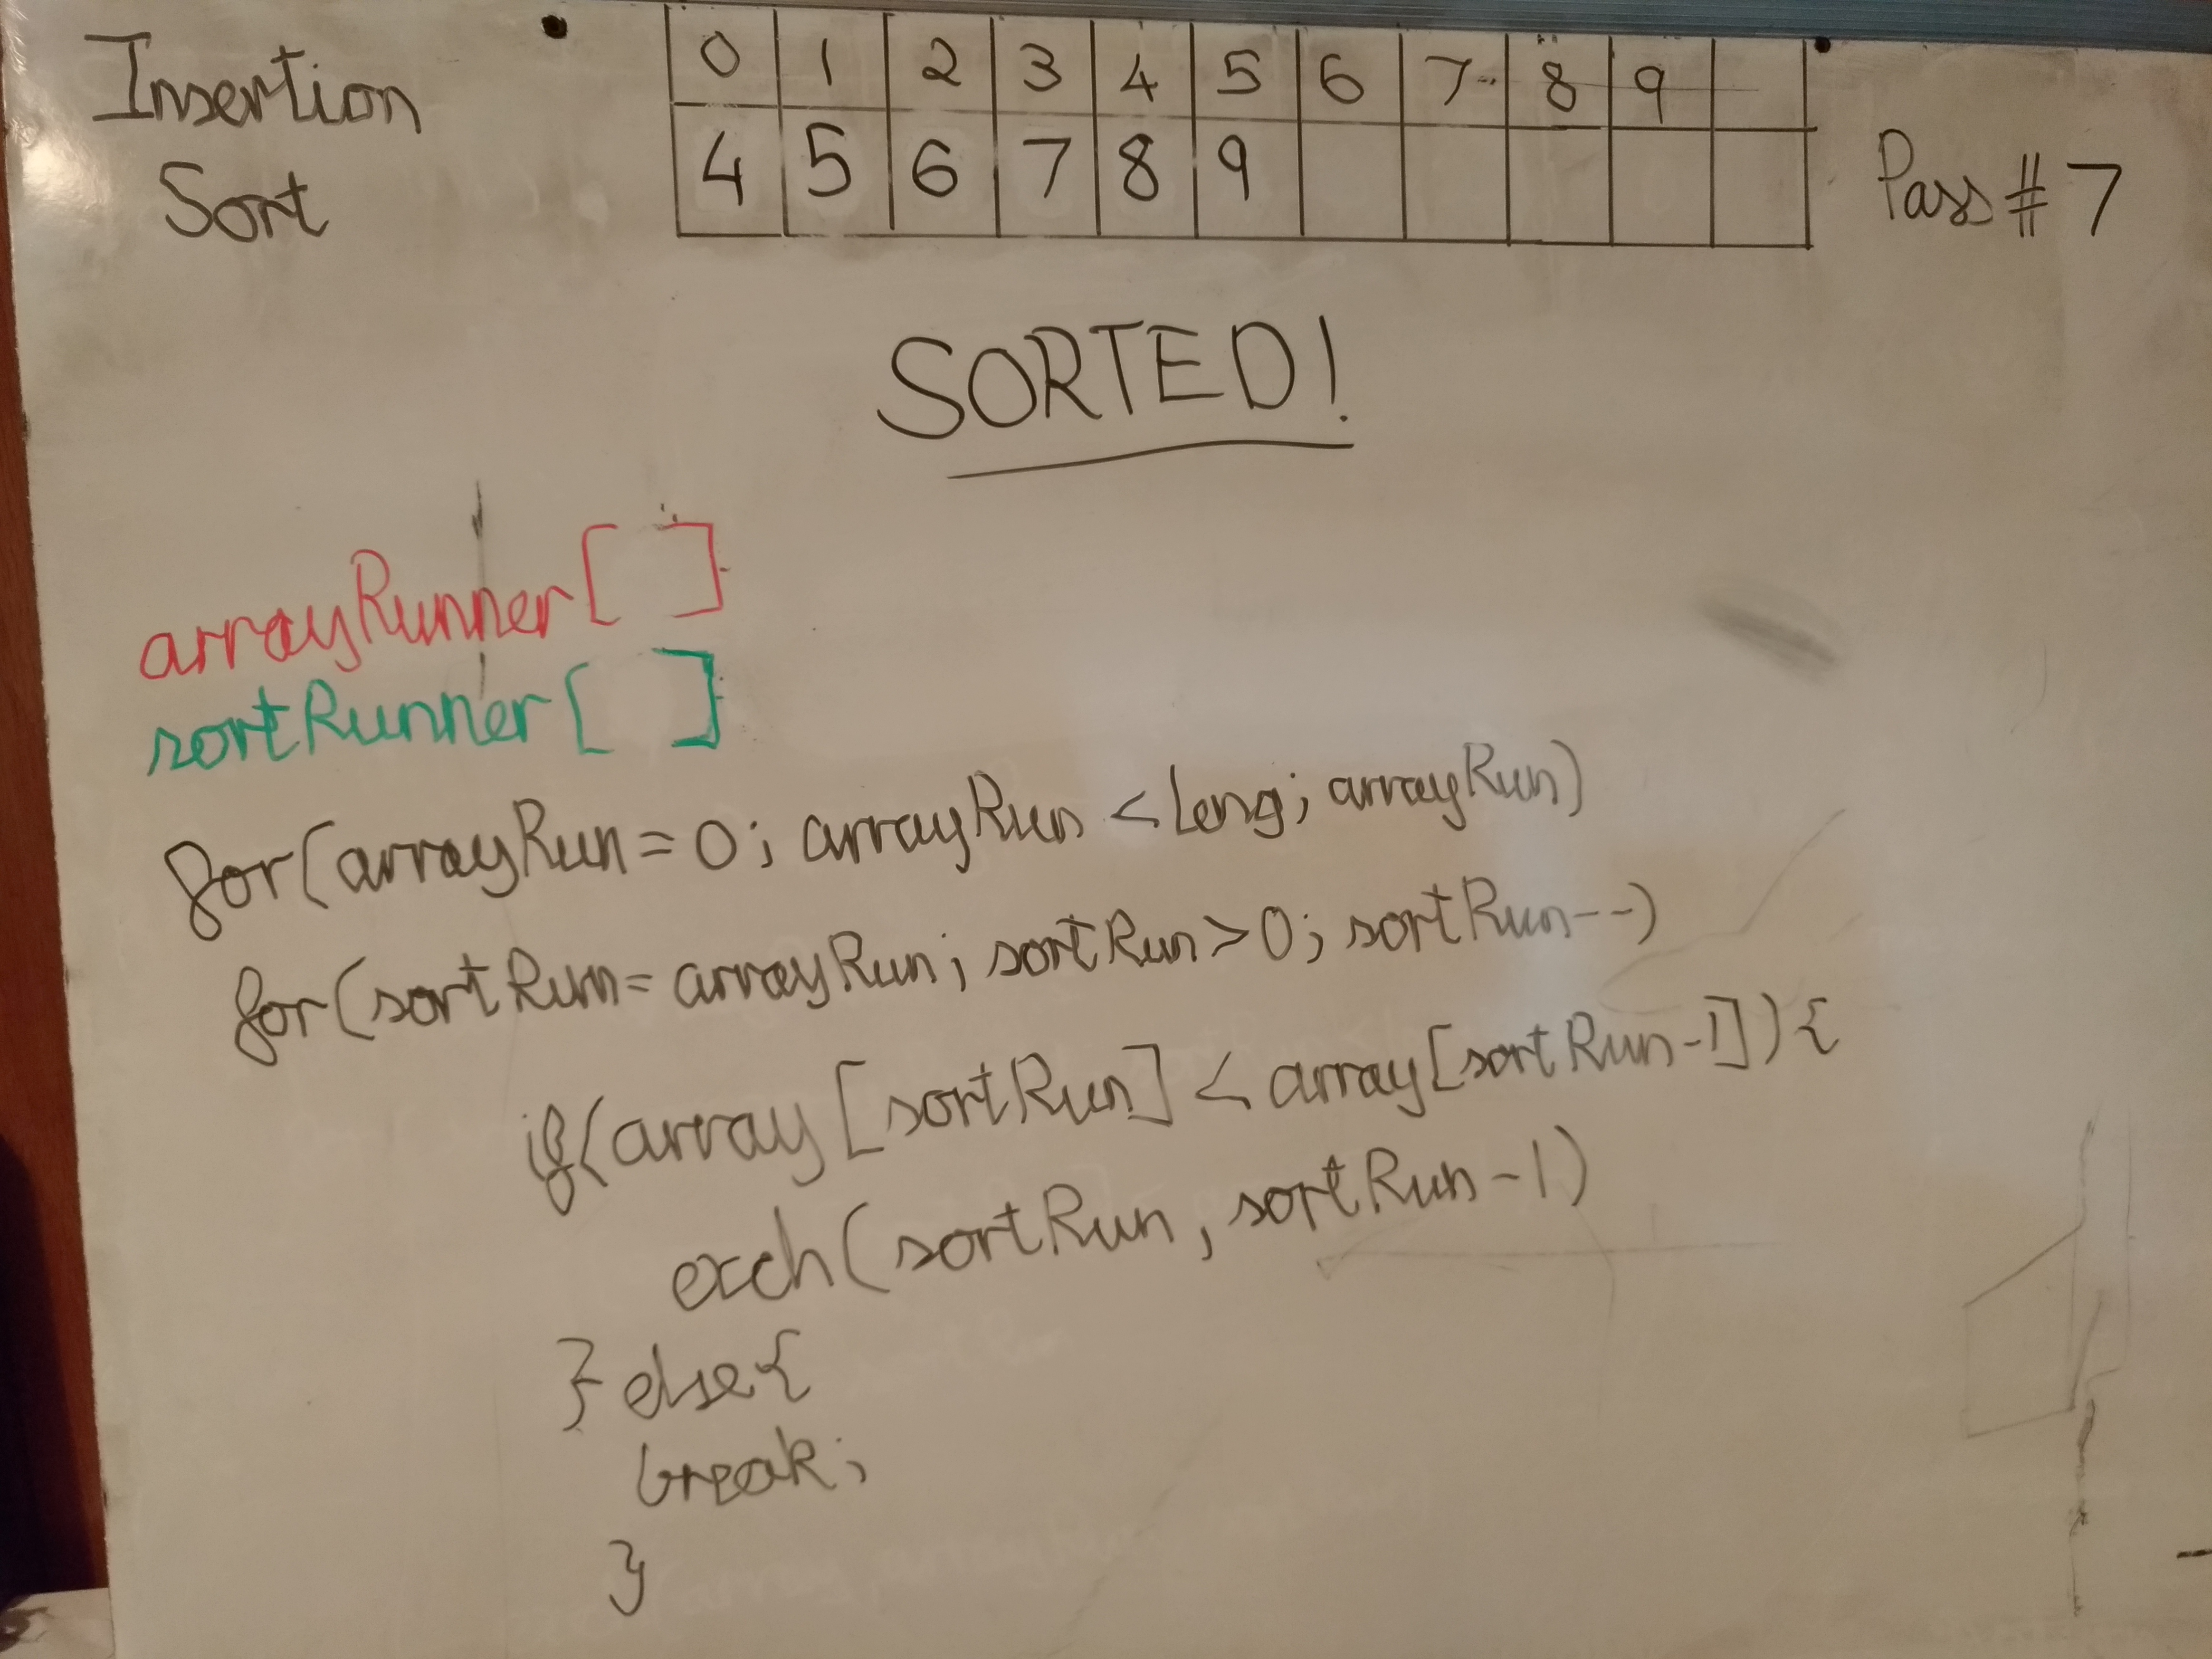 Insertion
Sort
0 1 2 3 4 5 6 7 8 9
4 5 6 7 8 9
Pass # 7
SORTED!
arrayRunner[ ]
sortRunner[ ]
for(arrayRun=0; arrayRun < leng; arrayRun)
for(sortRun= arrayRun; sortRun>0; sortRun--)
if(array[sortRun] < array[sortRun-1]){
exch(sortRun, sortRun-1)
} else{
break;
}